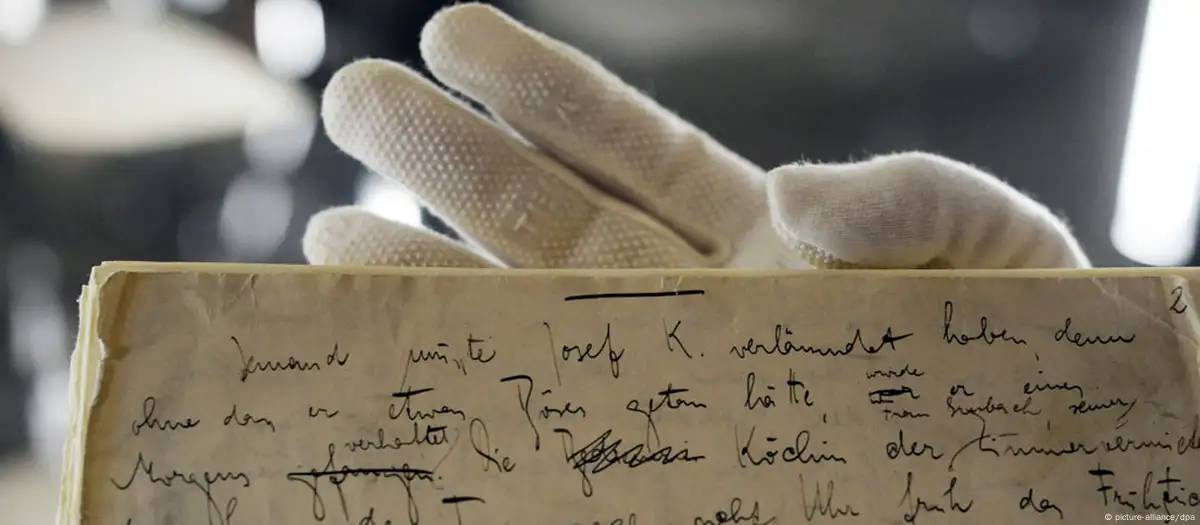 2
Jemand mußte Josef K. verläumdet haben, denn
ohne dass er etwas Böses getan hätte, war wurde er eines
Frau Grubach, seiner
Morgens gefangen verhaftet. Die Köchin der Zimmervermie
acht Uhr früh das Frühstü
© picture-alliance/dpa